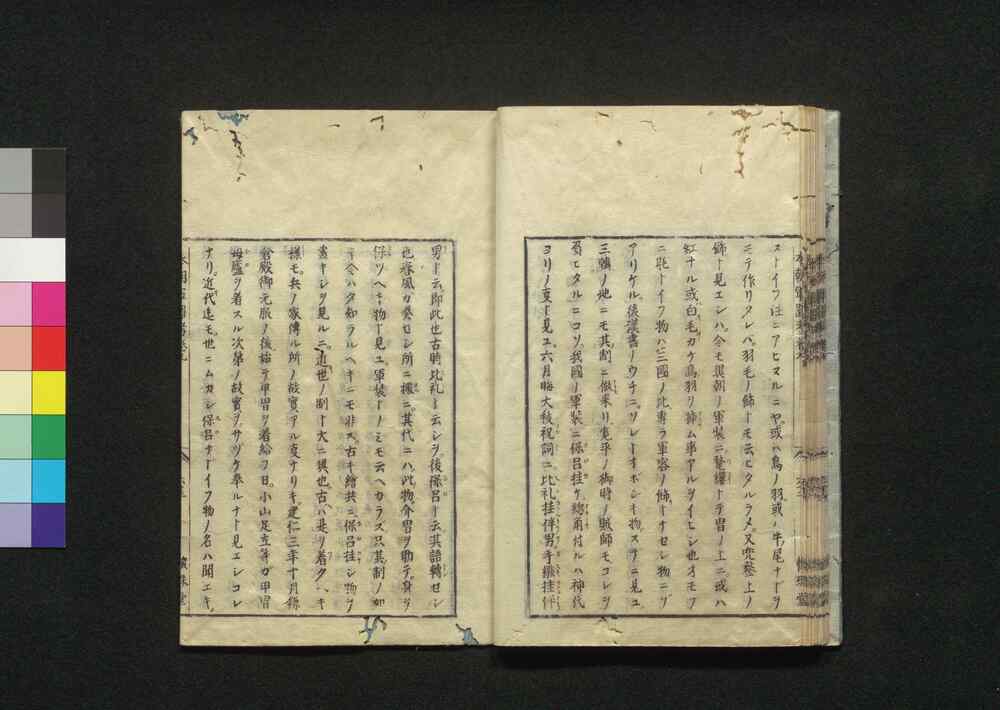 ストイフ注ニアヒスルニヤ或ハ鳥ノ羽或ハ牛尾ナドヲ
ニテ作リタレバ羽毛ノ飾トモ云ヒタルラメ又兜鍪上ノ
飾ト見エシハ今モ異朝ノ軍装ニ
トテ冑ノ上ニ或ハ
紅ナル或白毛カケ鳥羽リ飾ム事アルヲイヒシ也オモフ
ニ毦トイフ物ハ三國ノ比専ラ軍容ノ飾トナセシ物ニゾ
アリケル後漢書ノウチニソレトオボシキ物スラニ見ユ
三韓ノ地ニモ其制ニ倣来リ寛平ノ御時ノ賊師モコレヲ
着ヒタルニコソ我國ノ軍装ニ保呂挂ケ總角付ルハ神代
ヨリノ事ト見ユ六月晦大祓祝詞ニ比礼挂伴男手襁挂伴
男ト云即此也古時比礼ト云シヲ後保呂ト云其語轉セシ
也春風カ奏セシ所ニ據ニ其代ニハ此物介冑ヲ助テ身ヲ
保ツヘキ物ト見ユ軍装トノミモ云ヘカラス只其制ノ如
キ今ハタ知ラルヘキニモ非ス古キ繪共ニ保呂挂シ物ヲ
畫キシヲ見ルニ近世ノ制ト大ニ異也古ハ是ヲ着タヘキ
様モ兵ノ家傳ル所ノ故實アル事ナリキ建仁三年十月鎌
倉殿御元服ノ後始テ甲冑ヲ着給フ日小山足立等カ甲冑
母廬ヲ着スル次第ノ故實ヲサヅケ奉ルナト見エシコレ
ナリ近代迄モ世ニムカシ保呂ナトイフ物ノ名ハ聞エキ